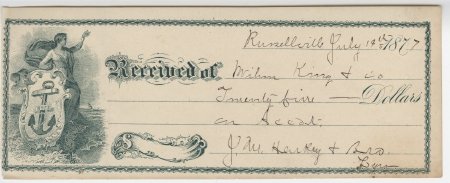 Russellville July 19th 1877
Received of Wilson King & Co
Twenty five — Dollars
on Accont
J M & Bro